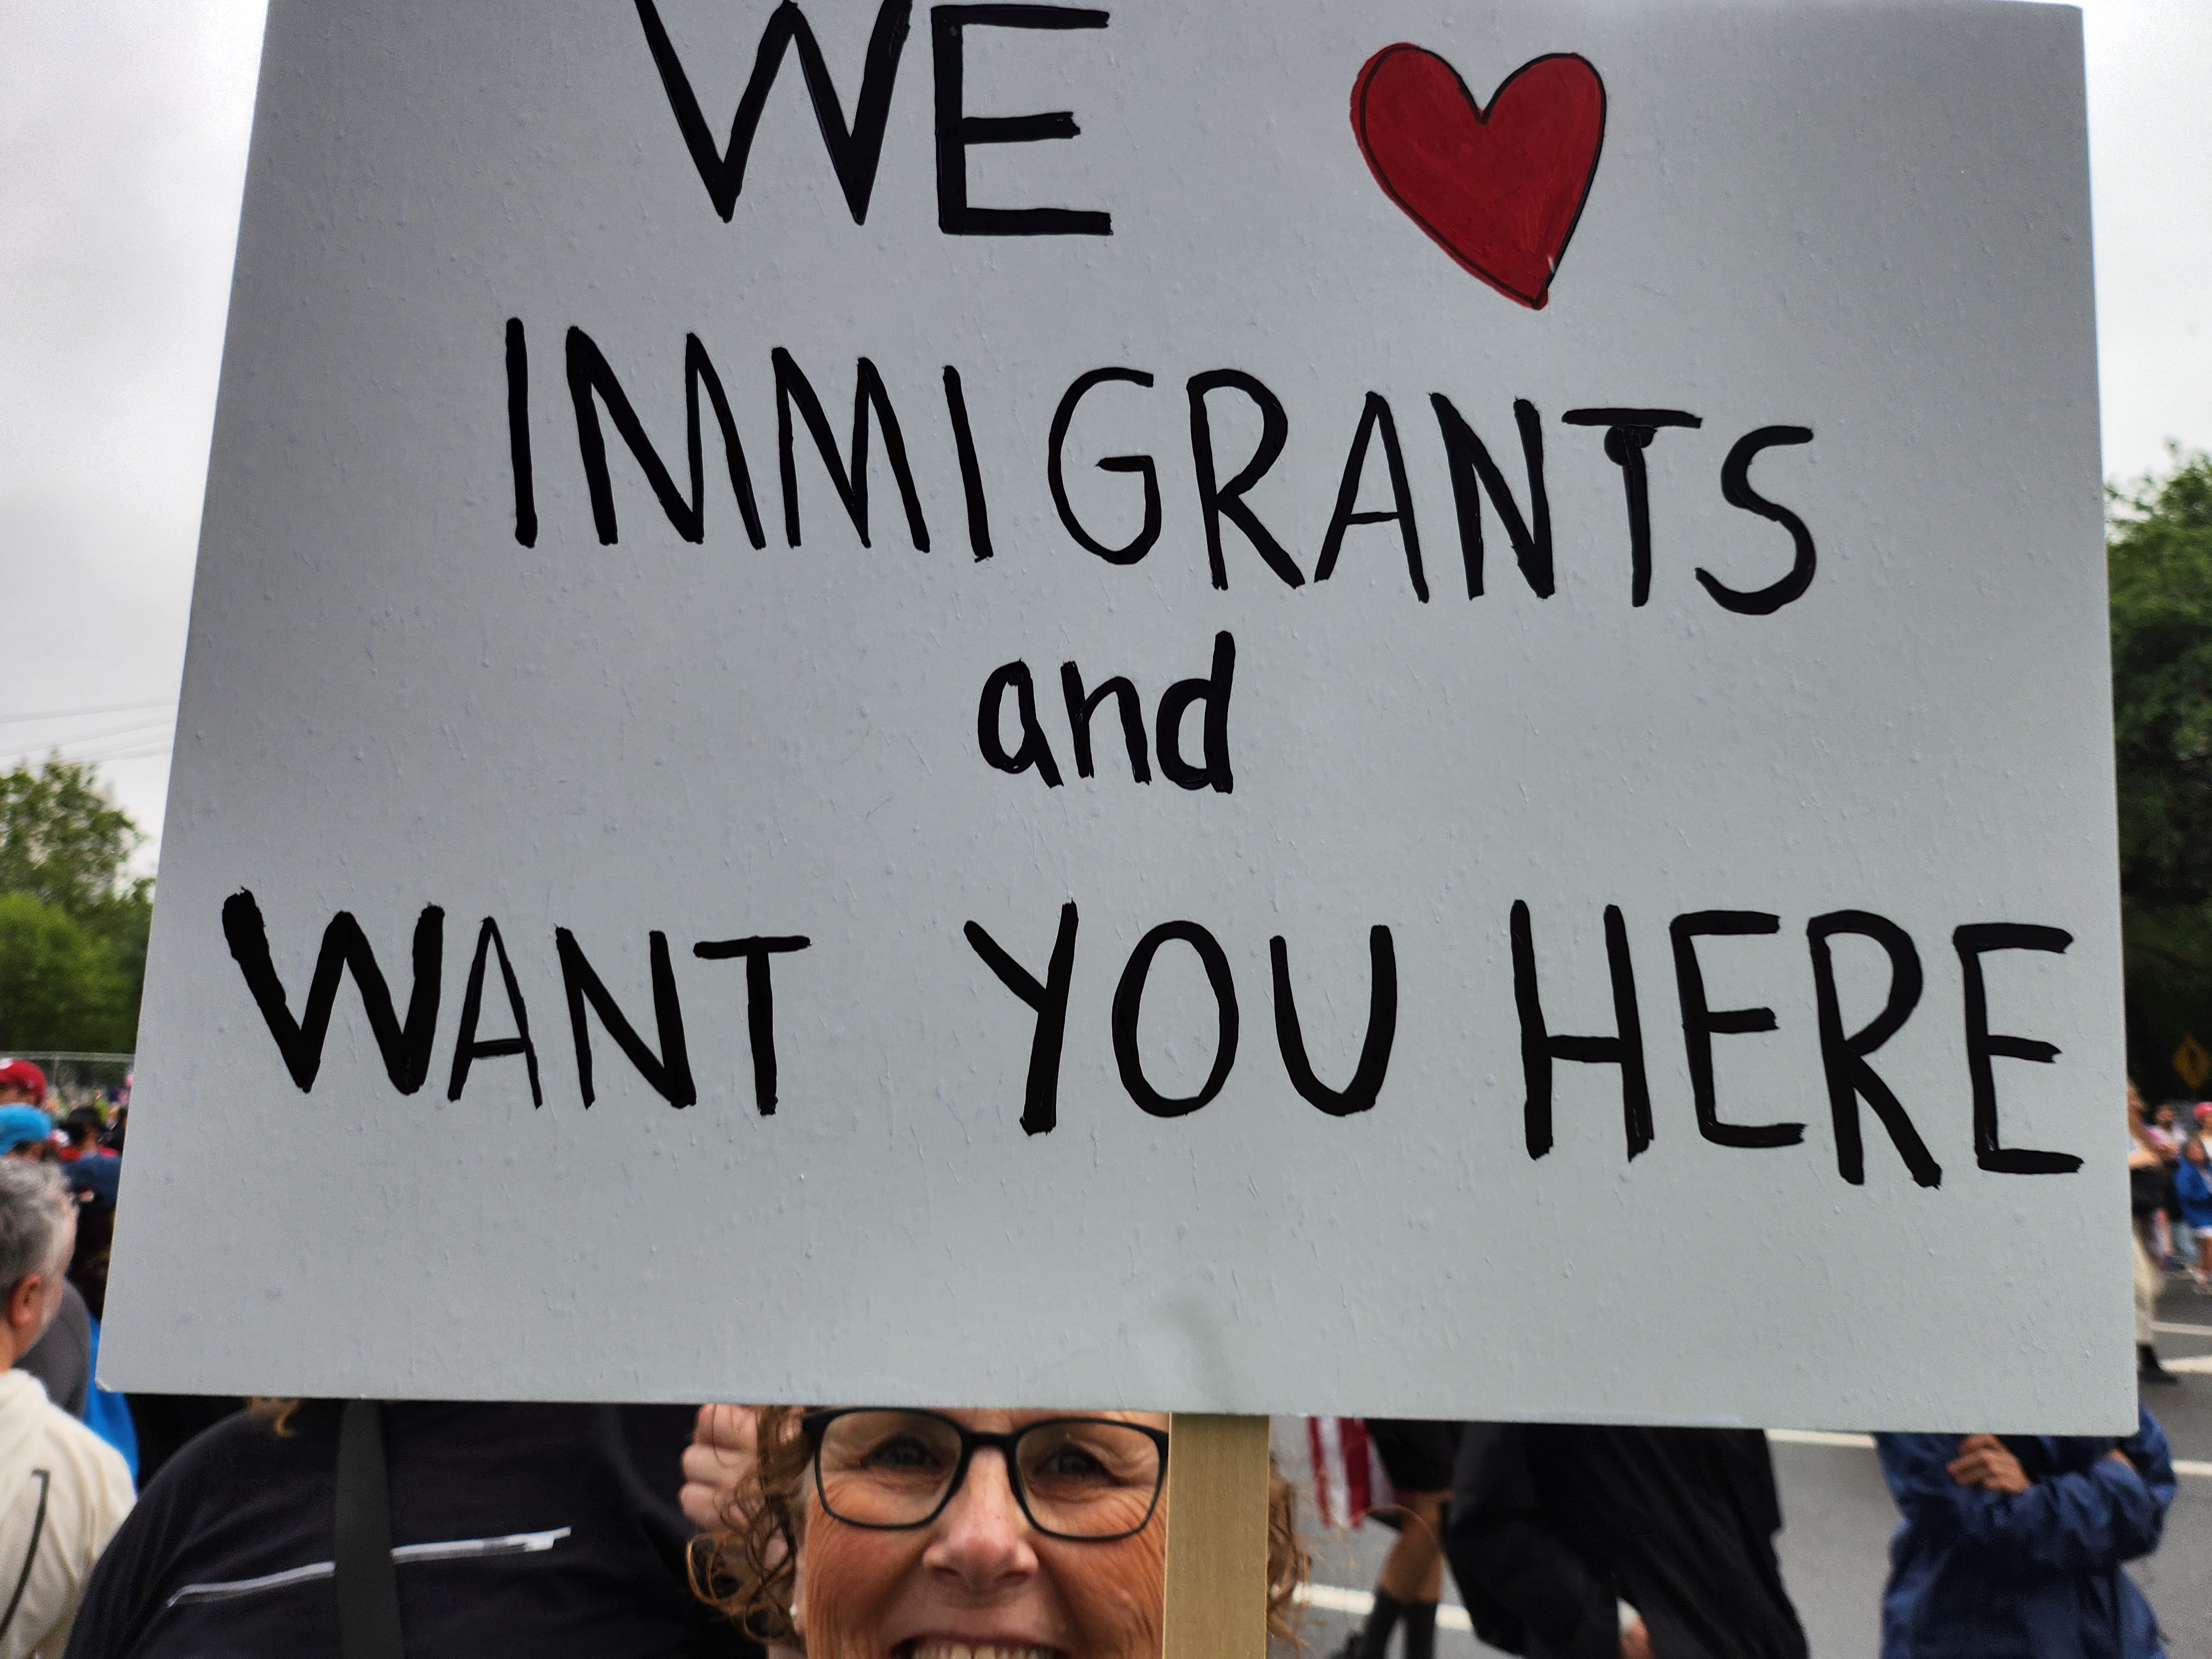 WE ❤
IMMIGRANTS
and
WANT YOU HERE